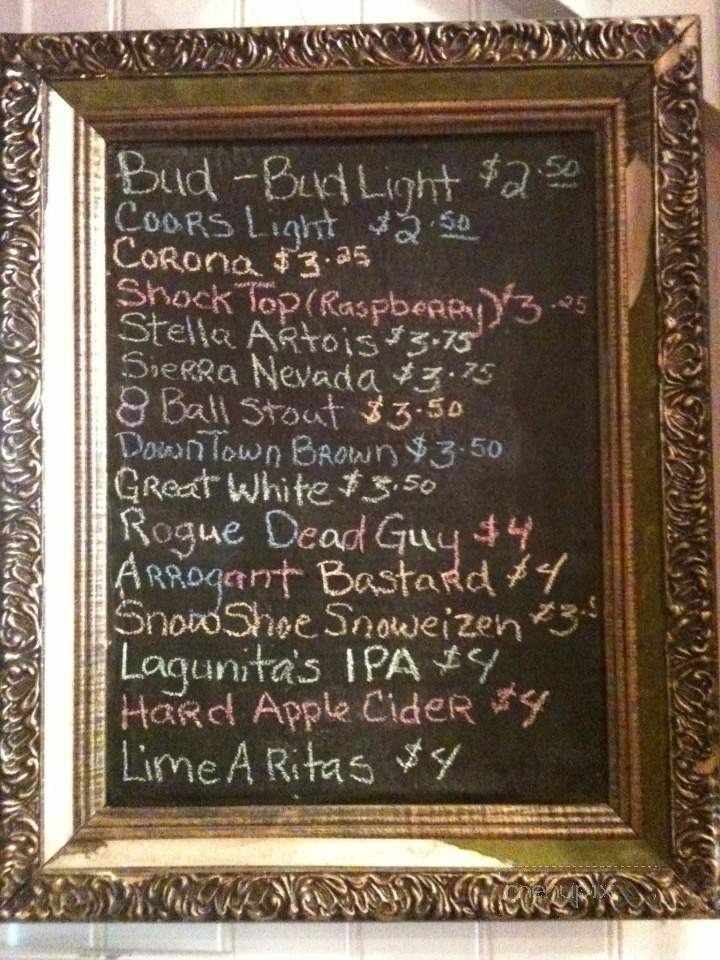 Bud - Bud Light $2.50
Coors Light $2.50
Corona $3.25
Shock Top (Raspberry) $3.25
Stella Artois $3.75
Sierra Nevada $3.75
8 Ball Stout $3.50
DownTown Brown $3.50
Great White $3.50
Rogue Dead Guy $4
Arrogant Bastard $4
SnowShoe Snoweizen $3.
Lagunita's IPA $4
Hard Apple Cider $4
Lime A Ritas $4
menupix